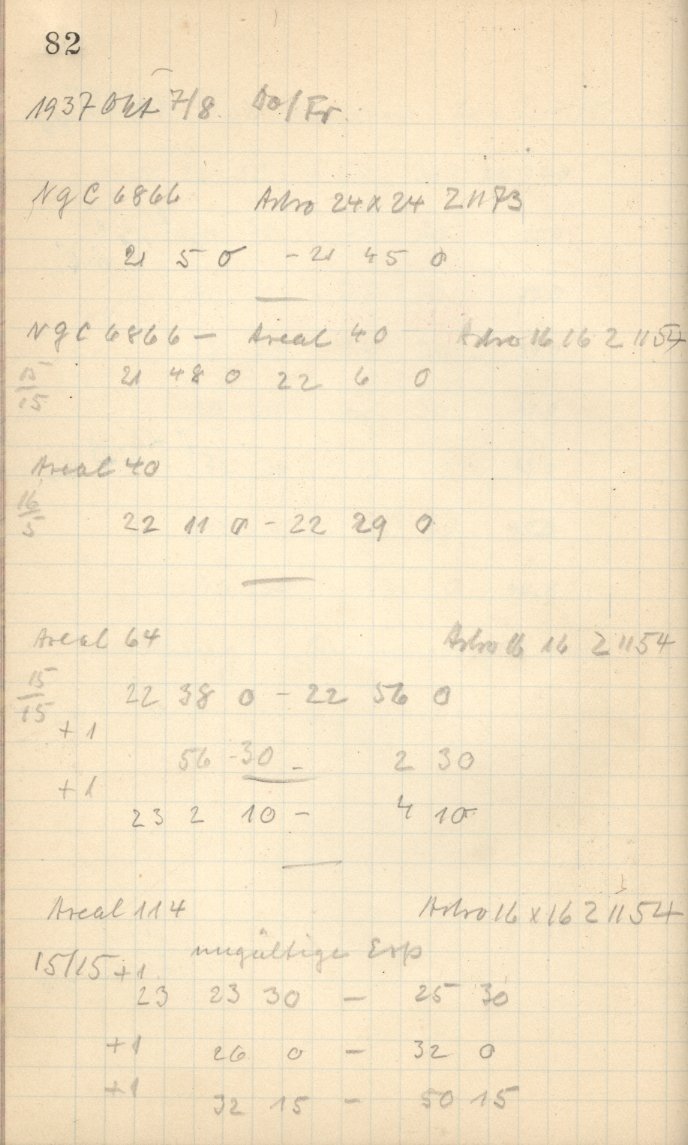 82
1937 Okt 7/8 Do/Fr.
NgC 6866 Astro 24x24 Z1173
21 5 0 - 21 45 0
NgC 6866 - Areal 40 Astro 16 16 Z 1154
15/15 21 48 0 22 6 0
Areal 40
16/5 22 11 0 - 22 29 0
Areal 64 Astro 16 16 Z 1154
15/15 22 38 0 - 22 56 0
+1
56 30 - 2 30
+1
23 2 10 - 4 10
Areal 114 Astro 16 x 16 Z 1154
ungültige Exp
15/15 +1
23 23 30 - 25 30
+1 26 0 - 32 0
+1 32 15 - 50 15